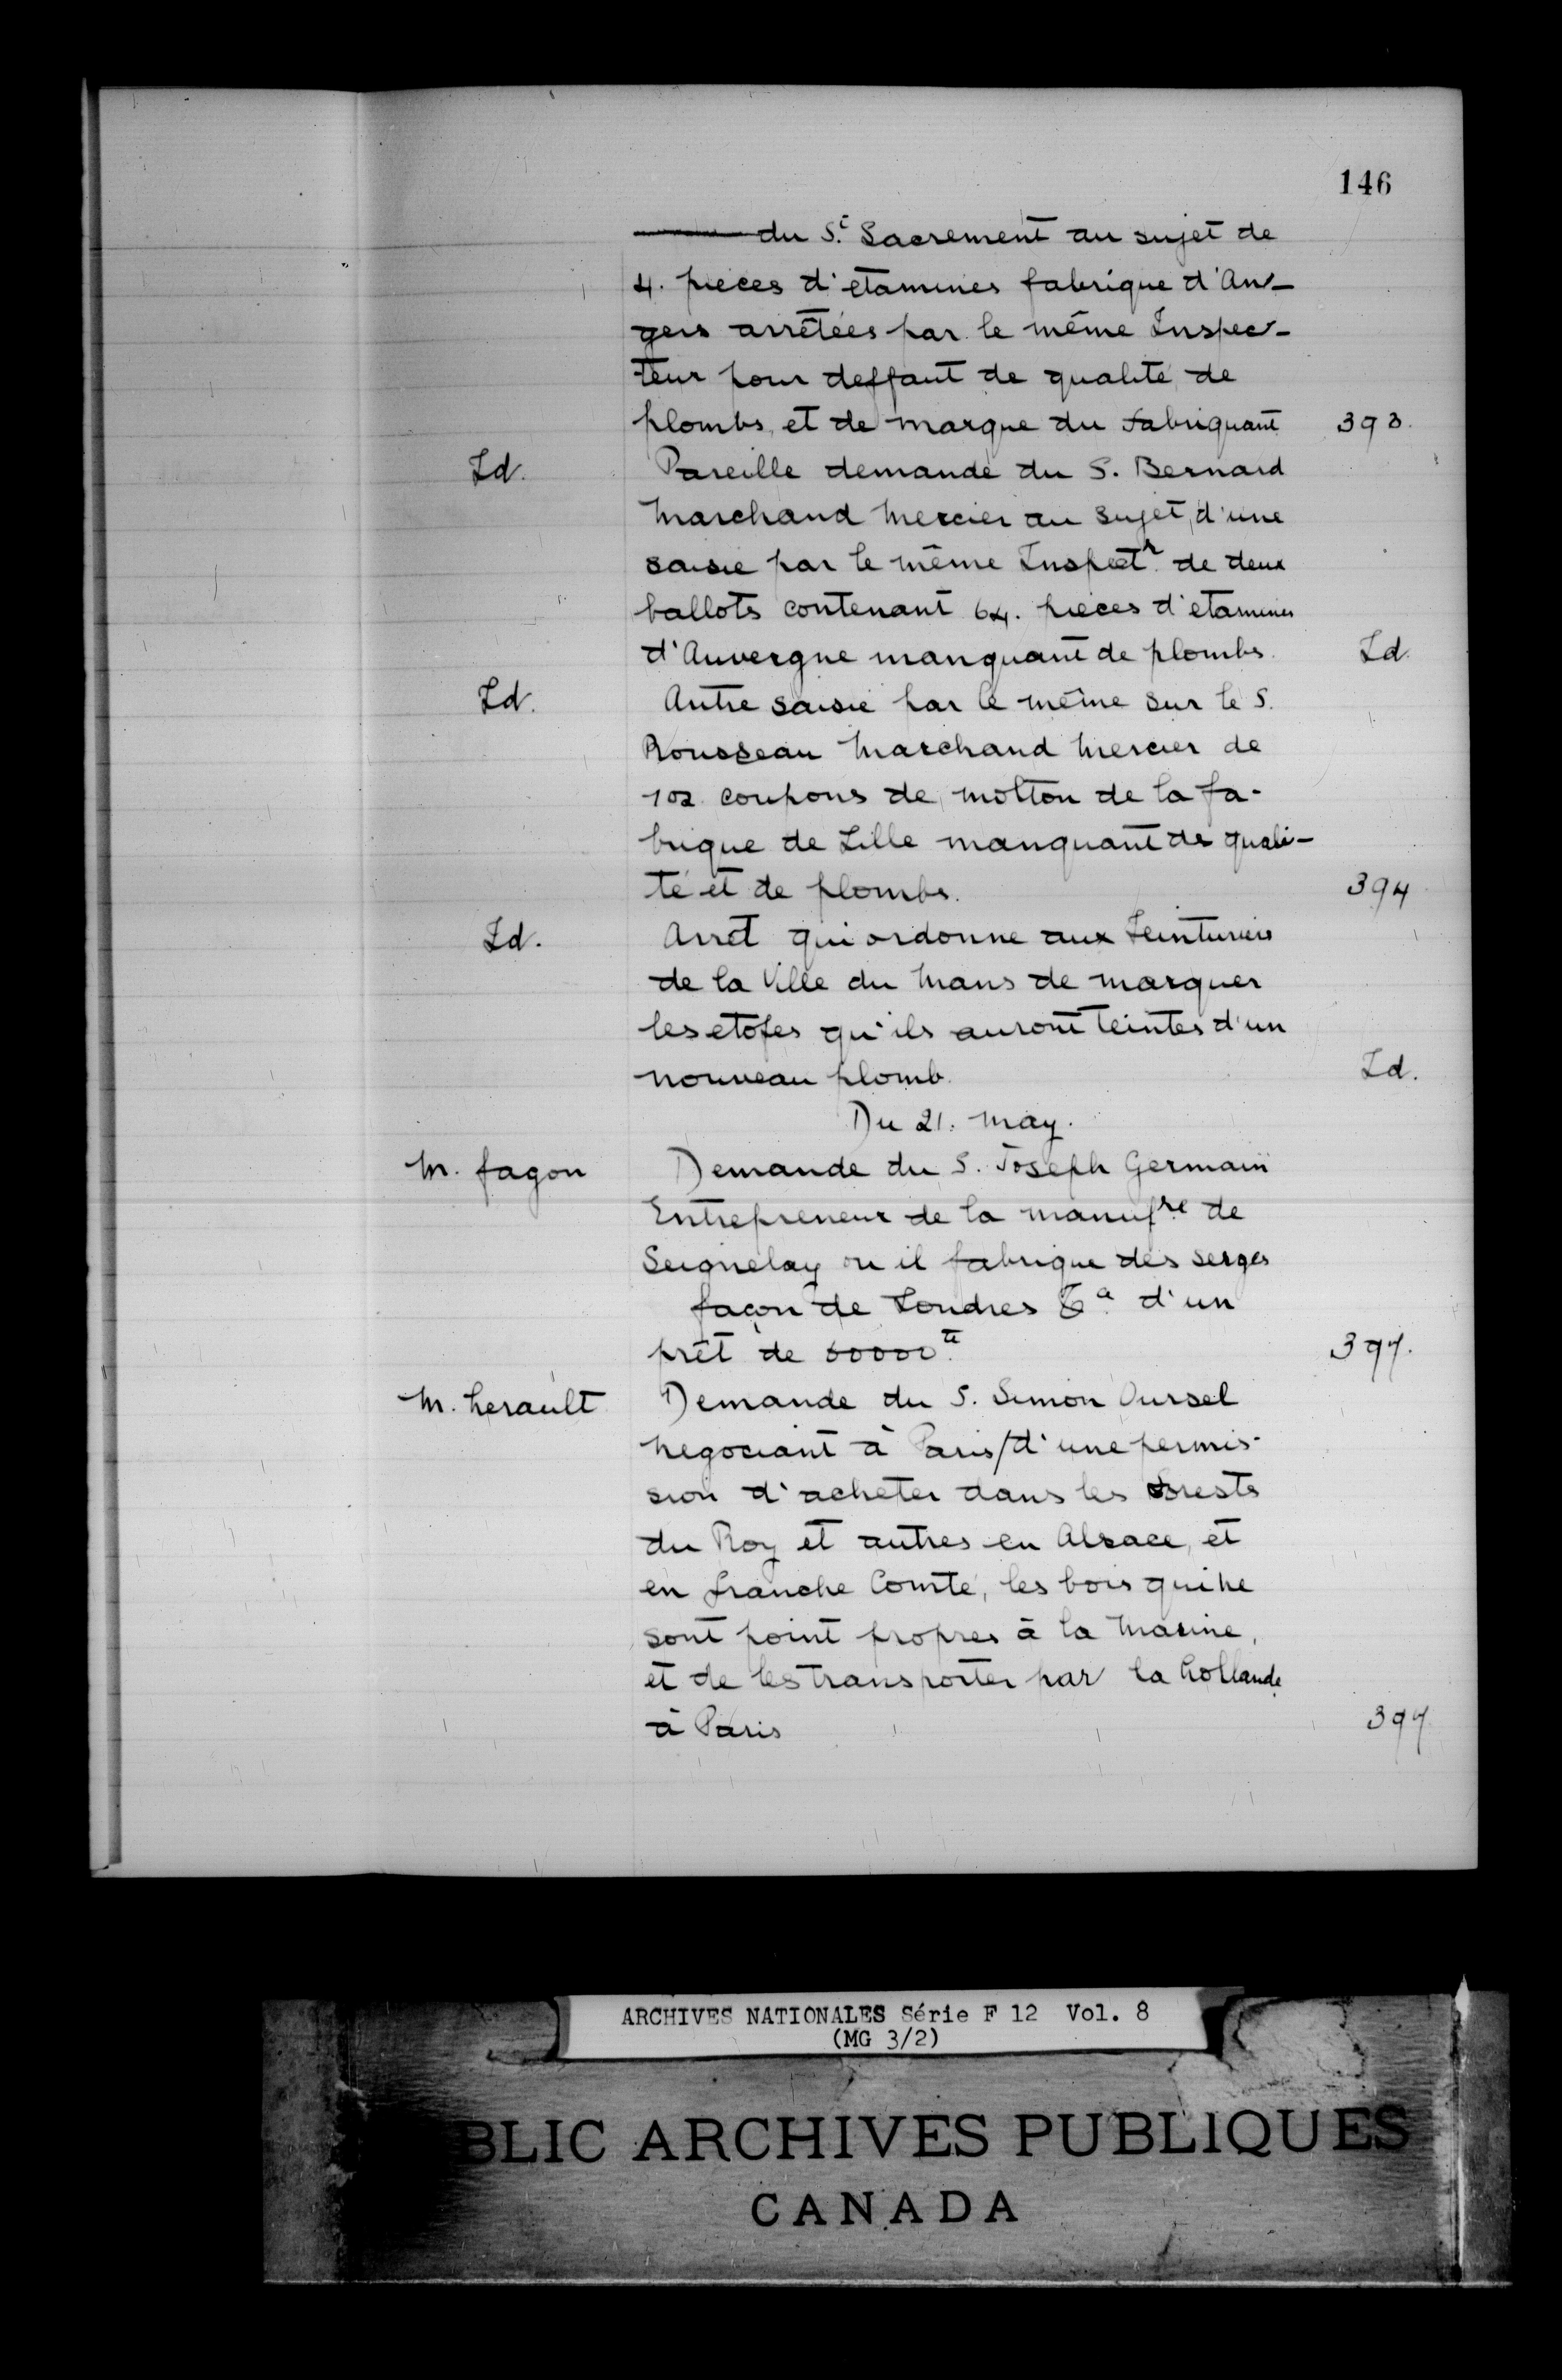 146
du S.t Sacrement au sujet de
4. pieces d'etamines fabrique d'An-
gers arrêtées par le même Inspec-
teur pour deffaut de qualité, de
plombs, et de marque du fabriquant 393.
Id. Pareille demande du S. Bernard
Marchand Mercier au sujet d'une
saisie par le même Inspectr. de deux
ballots contenant 64. pieces d'etamines
d'Auvergne manquant de plombs. Id.
Id. Autre saisie par le même sur le S.
Rousseau Marchand Mercier de
102 coupons de molton de la fa-
brique de Lille manquant de quali-
té et de plombs. 394
Id. Arrêt qui ordonne aux Teinturiers
de la Ville du Mans de marquer
les etofes qu'ils auront teintes d'un
nouveau plomb. Id.
Du 21. May.
M. fagon Demande du S. Joseph Germain
Entrepreneur de la manufre de
Seignelay ou il fabrique des serges
façon de Londres &a. d'un
prêt de 60000tt 397.
M. herault Demande du S. Simon Oursel
Negociant à Paris/d'une permis-
sion d'acheter dans les forests
du Roy et autres en Alsace, et
en franche Comté, les bois qui ne
sont point propres à la Marine,
et de les transporter par la hollande
à Paris 397
ARCHIVES NATIONALES Série F 12 Vol. 8
(MG 3/2)
BLIC ARCHIVES PUBLIQUES
CANADA